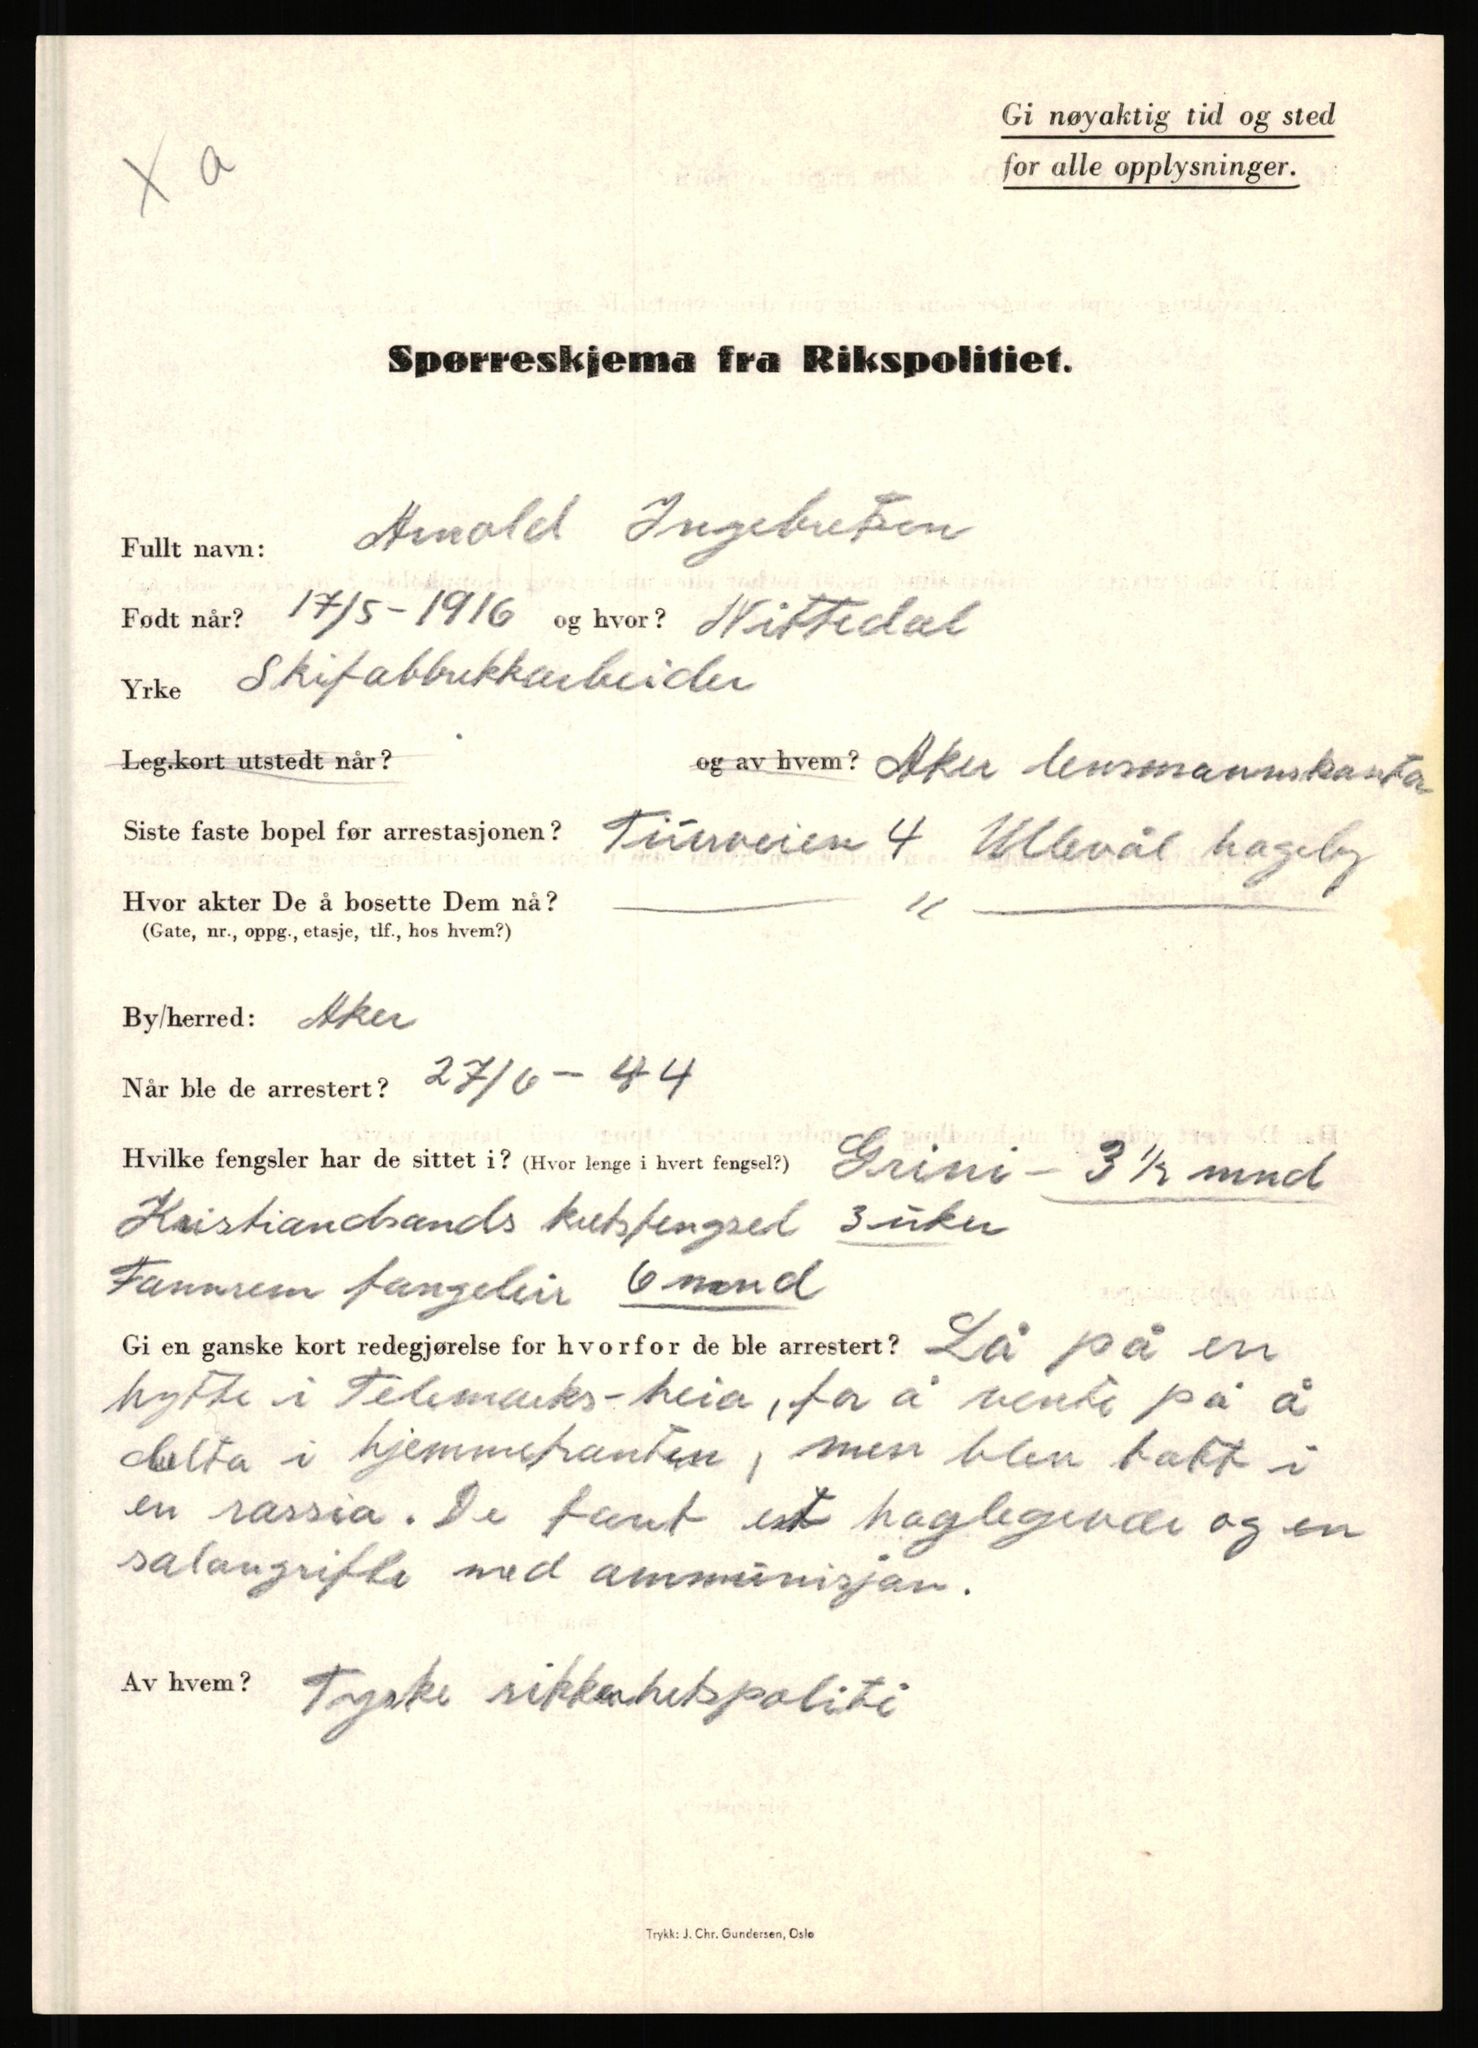 Gi nøyaktig tid og sted
for alle opplysninger.
X a
Spørreskjema fra Rikspolitiet.
Fullt navn: Arnold Ingebretsen
Født når? 17/5-1916 og hvor? Nittedal
Yrke Skifabbrikkarbeider
Leg.kort utstedt når? og av hvem? Aker lensmannskontor
Siste faste bopel før arrestasjonen? Tuirveien 4 Ullevål hageby
Hvor akter De å bosette Dem nå? — " —
(Gate, nr., oppg., etasje, tlf., hos hvem?)
By/herred: Aker
Når ble de arrestert? 27/6 – 44
Hvilke fengsler har de sittet i? (Hvor lenge i hvert fengsel?) Grini – 3 1/2 mnd
Kristiandsands kretsfengsel 3 uker
Fannrem fangeleir 6 mnd
Gi en ganske kort redegjørelse for hvorfor de ble arrestert? Lå på en
hytte i Telemarks-heia, for å vente på å
delta i hjemmefronten, men blev tatt i
en rassia. De fant et haglegevær og en
salongrifle med ammunisjon.
Av hvem? Tyske sikkerhetspoliti
Trykk: J. Chr. Gundersen, Oslo